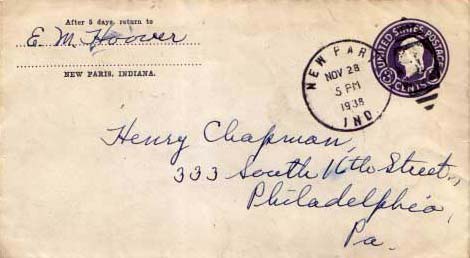 After 5 days, return to
E. M. Hoover
NEW PARIS, INDIANA.
NEW PARIS
NOV 28
5 PM
1938
IND
UNITED STATES POSTAGE
3 CENTS 3
Henry Chapman,
333 South 16th Street,
Philadelphia,
Pa.